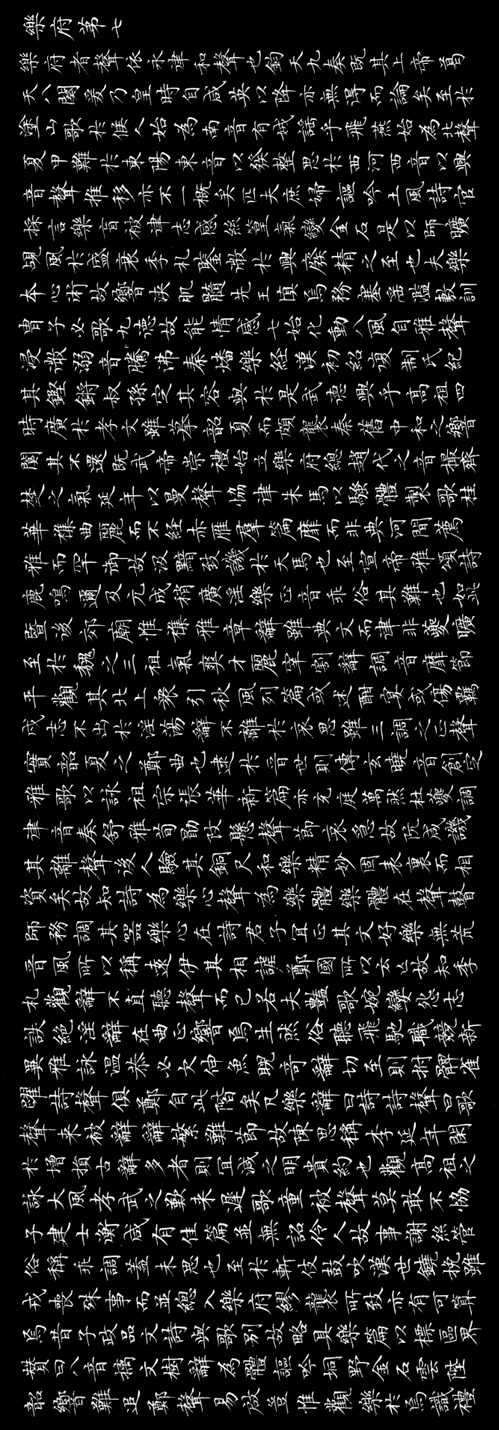 樂府第七
樂府者聲依永律和聲也鈞天九奏既其上帝葛
天八闋爰乃皇時自咸英以降亦無得而論矣至於
塗山歌於候人始為南音有娀謠乎飛燕始為北聲
夏甲歎於東陽東音以發整思於西河西音以興
音聲推移亦不一概矣匹夫庶婦謳吟土風詩官
採言樂盲被律志感絲篁氣變金石是以師曠
覘風於盛衰季札鑒微於興廢精之至也夫樂
本心術故響浹肌髓先王慎焉務塞淫濫敷訓
胄子必歌九德故能情感七始化動八風自雅聲
浸微溺音騰沸秦燔樂經漢初紹復制氏紀
其鏗鏘叔孫定其容與於是武德興乎高祖四
時廣於孝文雖摹韶夏而頗襲秦舊中和之響
闃其不還既武帝崇禮始立樂府總趙代之音撮齊
楚之氣延年以曼聲協律朱馬以騷體製歌桂
華雜曲麗而不經赤雁群篇靡而非典河間薦
雅而罕御故汲黯致譏於天馬也至宣帝雅頌詩
鹿鳴邇及元成稍廣淫樂正音乖俗其難也如此
暨後郊廟惟雜雅章辭雖典文而律非夔曠
至於魏之三祖氣爽才麗宰割辭調音靡節
平觀其北上眾引秋風列篇或述酣宴或傷羈
戍志不出於淫蕩辭不離於哀思雖三調之正聲
實韶夏之鄭曲也逮於晉世則傅玄曉音創定
雅歌以詠祖宗張華新篇亦充庭萬然杜夔調
律音奏舒雅荀勖改懸聲節哀急故阮咸譏
其離聲後人驗其銅尺和樂精妙固表裏而相
資矣故知詩為樂心聲為樂體樂體在聲瞽
師務調其器樂心在詩君子宜正其文好樂無荒
晉風所以稱遠伊其相謔鄭國所以云亡故知季
札觀辭不直聽聲而已若夫豔歌婉孌怨志
詄絕淫辭在曲正響焉生然俗聽飛馳職競新
異雅詠溫恭必欠伸魚睨奇辭切至則拊髀雀
躍詩聲俱鄭自此階矣凡樂辭曰詩詩聲曰歌
聲來被辭辭繁難節故陳思稱李延年閑
於增損古辭多者則宜減之明貴約也觀高祖之
詠大風孝武之歎來遲歌童被聲莫敢不協
子建士衡咸有佳篇並無詔伶人故事謝絲管
俗稱乖調蓋未思也至於斬伎鼓吹漢世鐃挽雖
戎喪殊事而並總入樂府繆襲所致亦有可算
焉昔子政品文詩與歌別故略具樂篇以標區界
贊曰八音摛文樹辭為體謳吟坰野金石雲陛
韶響難追鄭聲易啟豈惟觀樂於焉識禮